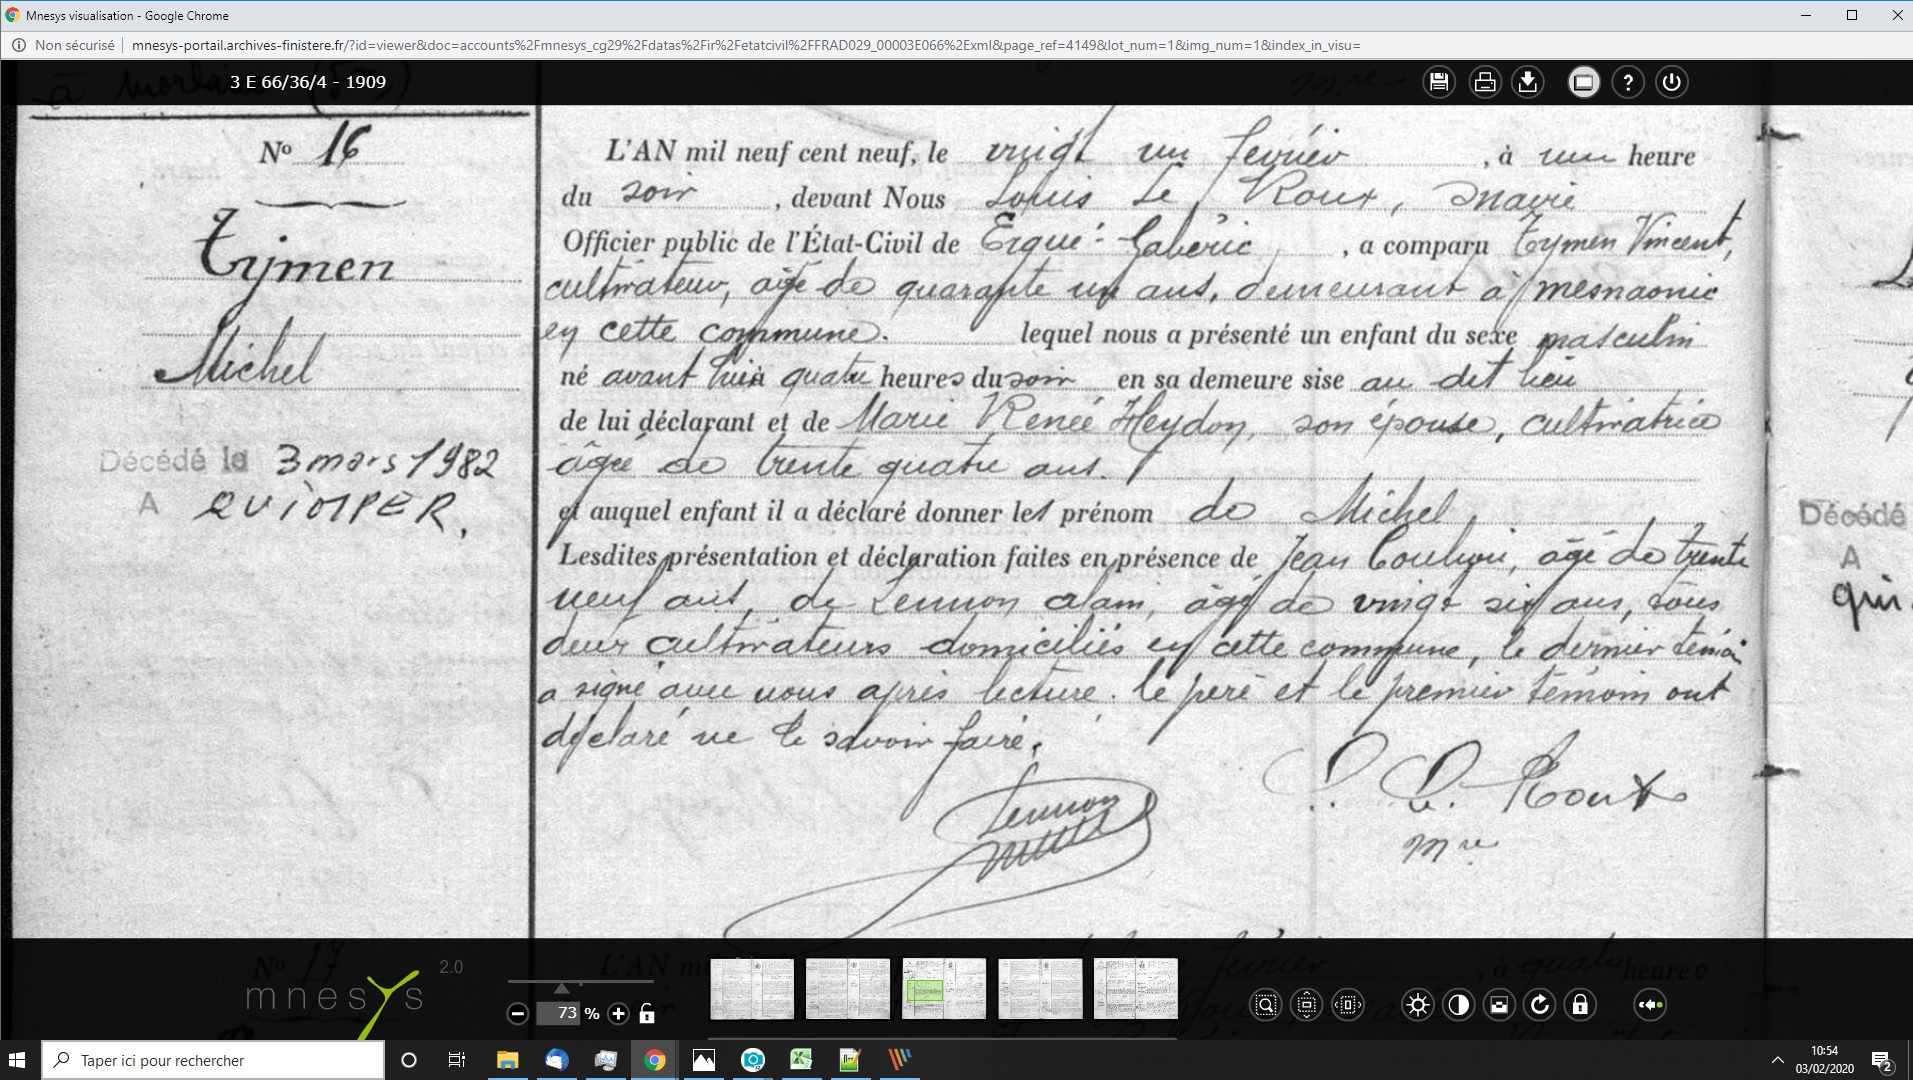 Mnesys visualisation - Google Chrome
Non sécurisé
mnesys-portail.archives-finistere.fr/?id=viewer&doc=accounts%2Fmnesys_cg29%2Fdatas%2Fir%2Fetatcivil%2FFRAD029_00003E066%2Exml&page_ref=4149&lot_num=1&img_num=1&index_in_visu=
à Morlaix
3 E 66/36/4 - 1909
Nº 16
Tymen
Michel
Décédé le 3 mars 1982
A QUIMPER.
L'AN mil neuf cent neuf, le vingt un février, à une heure
du soir, devant Nous Louis Le Roux, Maire
Officier public de l'État-Civil de Ergué-Gabéric, a comparu Tymen Vincent,
cultivateur, âgé de quarante un ans, demeurant à mesnaonic
en cette commune. lequel nous a présenté un enfant du sexe masculin
né avant hier à quatre heures du soir en sa demeure sise au dit lieu
de lui déclarant et de Marie Renée Heydon, son épouse, cultivatrice
âgée de trente quatre ans.
et auquel enfant il a déclaré donner les prénom de Michel
Lesdites présentation et déclaration faites en présence de Jean âgé de trente
neuf ans, de Lennon alain, âgé de vingt six ans, tous
deux cultivateurs domiciliés en cette commune, le dernier témoin
a signé avec nous après lecture. le père et le premier témoin ont
déclaré ne le savoir faire.
Lennon
L. Le Roux
mre
Décédé
A
qui
Nº 17
L'AN mi février, à quatre heures
mnesys 2.0
73 %
Taper ici pour rechercher
10:54
03/02/2020
2